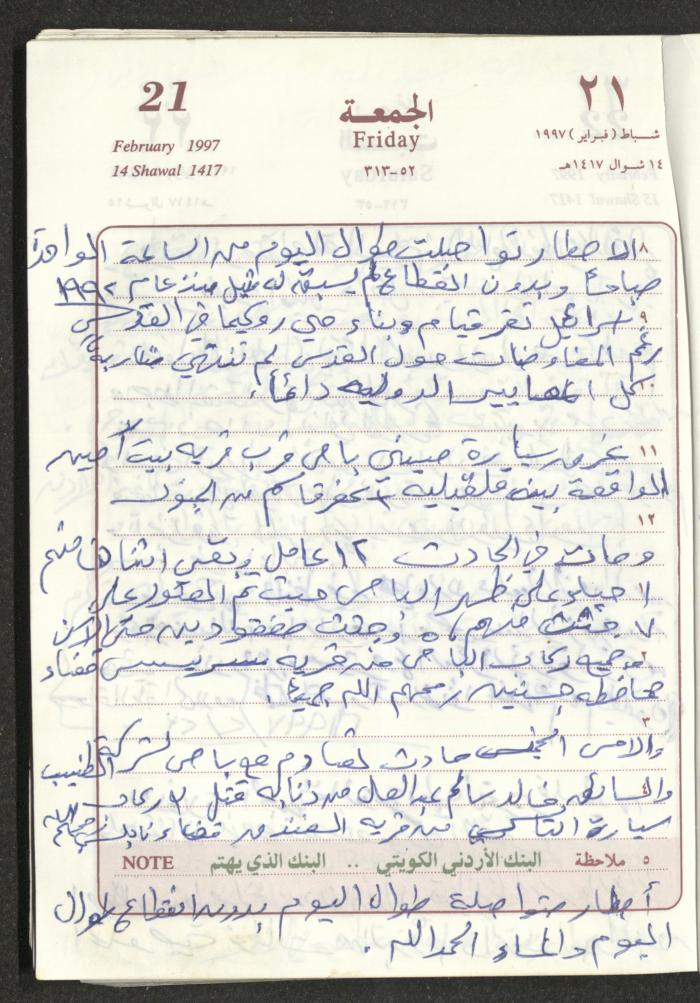 21
February 1997
14 Shawal 1417
الجمعة
Friday
٥٢-٣١٣
٢١
شباط (فبراير) ١٩٩٧
١٤ شوال ١٤١٧هـ
٨ الأمطار تواصلت طوال اليوم من الساعة الواحدة
صباحاً وبدون انقطاع لم يسبق له مثيل منذ عام ١٩٩٢
٩ اسرائيل تقر قيام وبناء حي في القدس
رغم المفاوضات حول القدس لم تنتهي ضاربة
١٠ كل المعايير الدولية دائماً.
١١ غرق سيارة ميني باص قرب قرية بيت أمين
الواقعة بين قلقيلية من الجنوب
١٢
ومات في الحادث ١٢ عامل وبقي اثنان منهم
١ على ظهر الباص حيث تم العثور على
٧ جثث منهم و ٥ وجثث مفقودين حتى الآن
٢ وجميع ركاب الباص من قرية سريس قضاء
محافظة جنين رحمهم الله جميعاً.
٣
والامس الخميس حادث تصادم مع باص لشركة
٤ والسائق خالد سالم عبدالعال من ذنابه قتل ٣ ركاب
سيارة التاكسي من قرية قضاء نابلس رحمهم الله
٥ ملاحظة
البنك الأردني الكويتي .. البنك الذي يهتم
NOTE
أمطار متواصلة طوال اليوم بدون انقطاع طوال
اليوم والمساء الحمدالله .